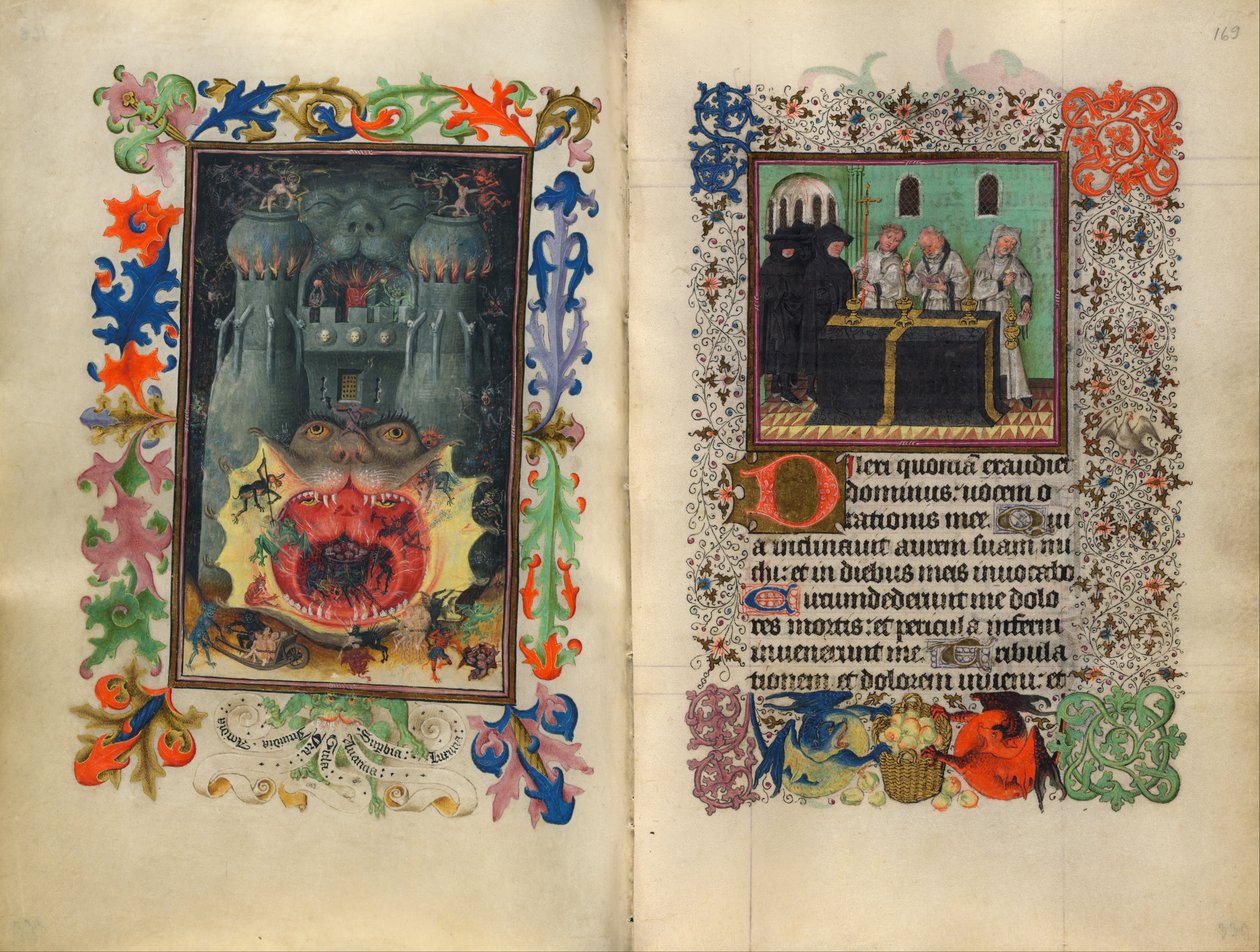 Inuidia
Ira:
Gula
Auaricia:
Supbia:
169
Dilexi quoniā exaudiet
dominus: uocem o
rationis mee. Qui
a inclinauit aurem suam mi
chi: et in diebus meis inuocabo
Circumdederunt me dolo
res mortis: et pericula inferni
inuenerunt me. Tribula
tionem et dolorem inueni: et